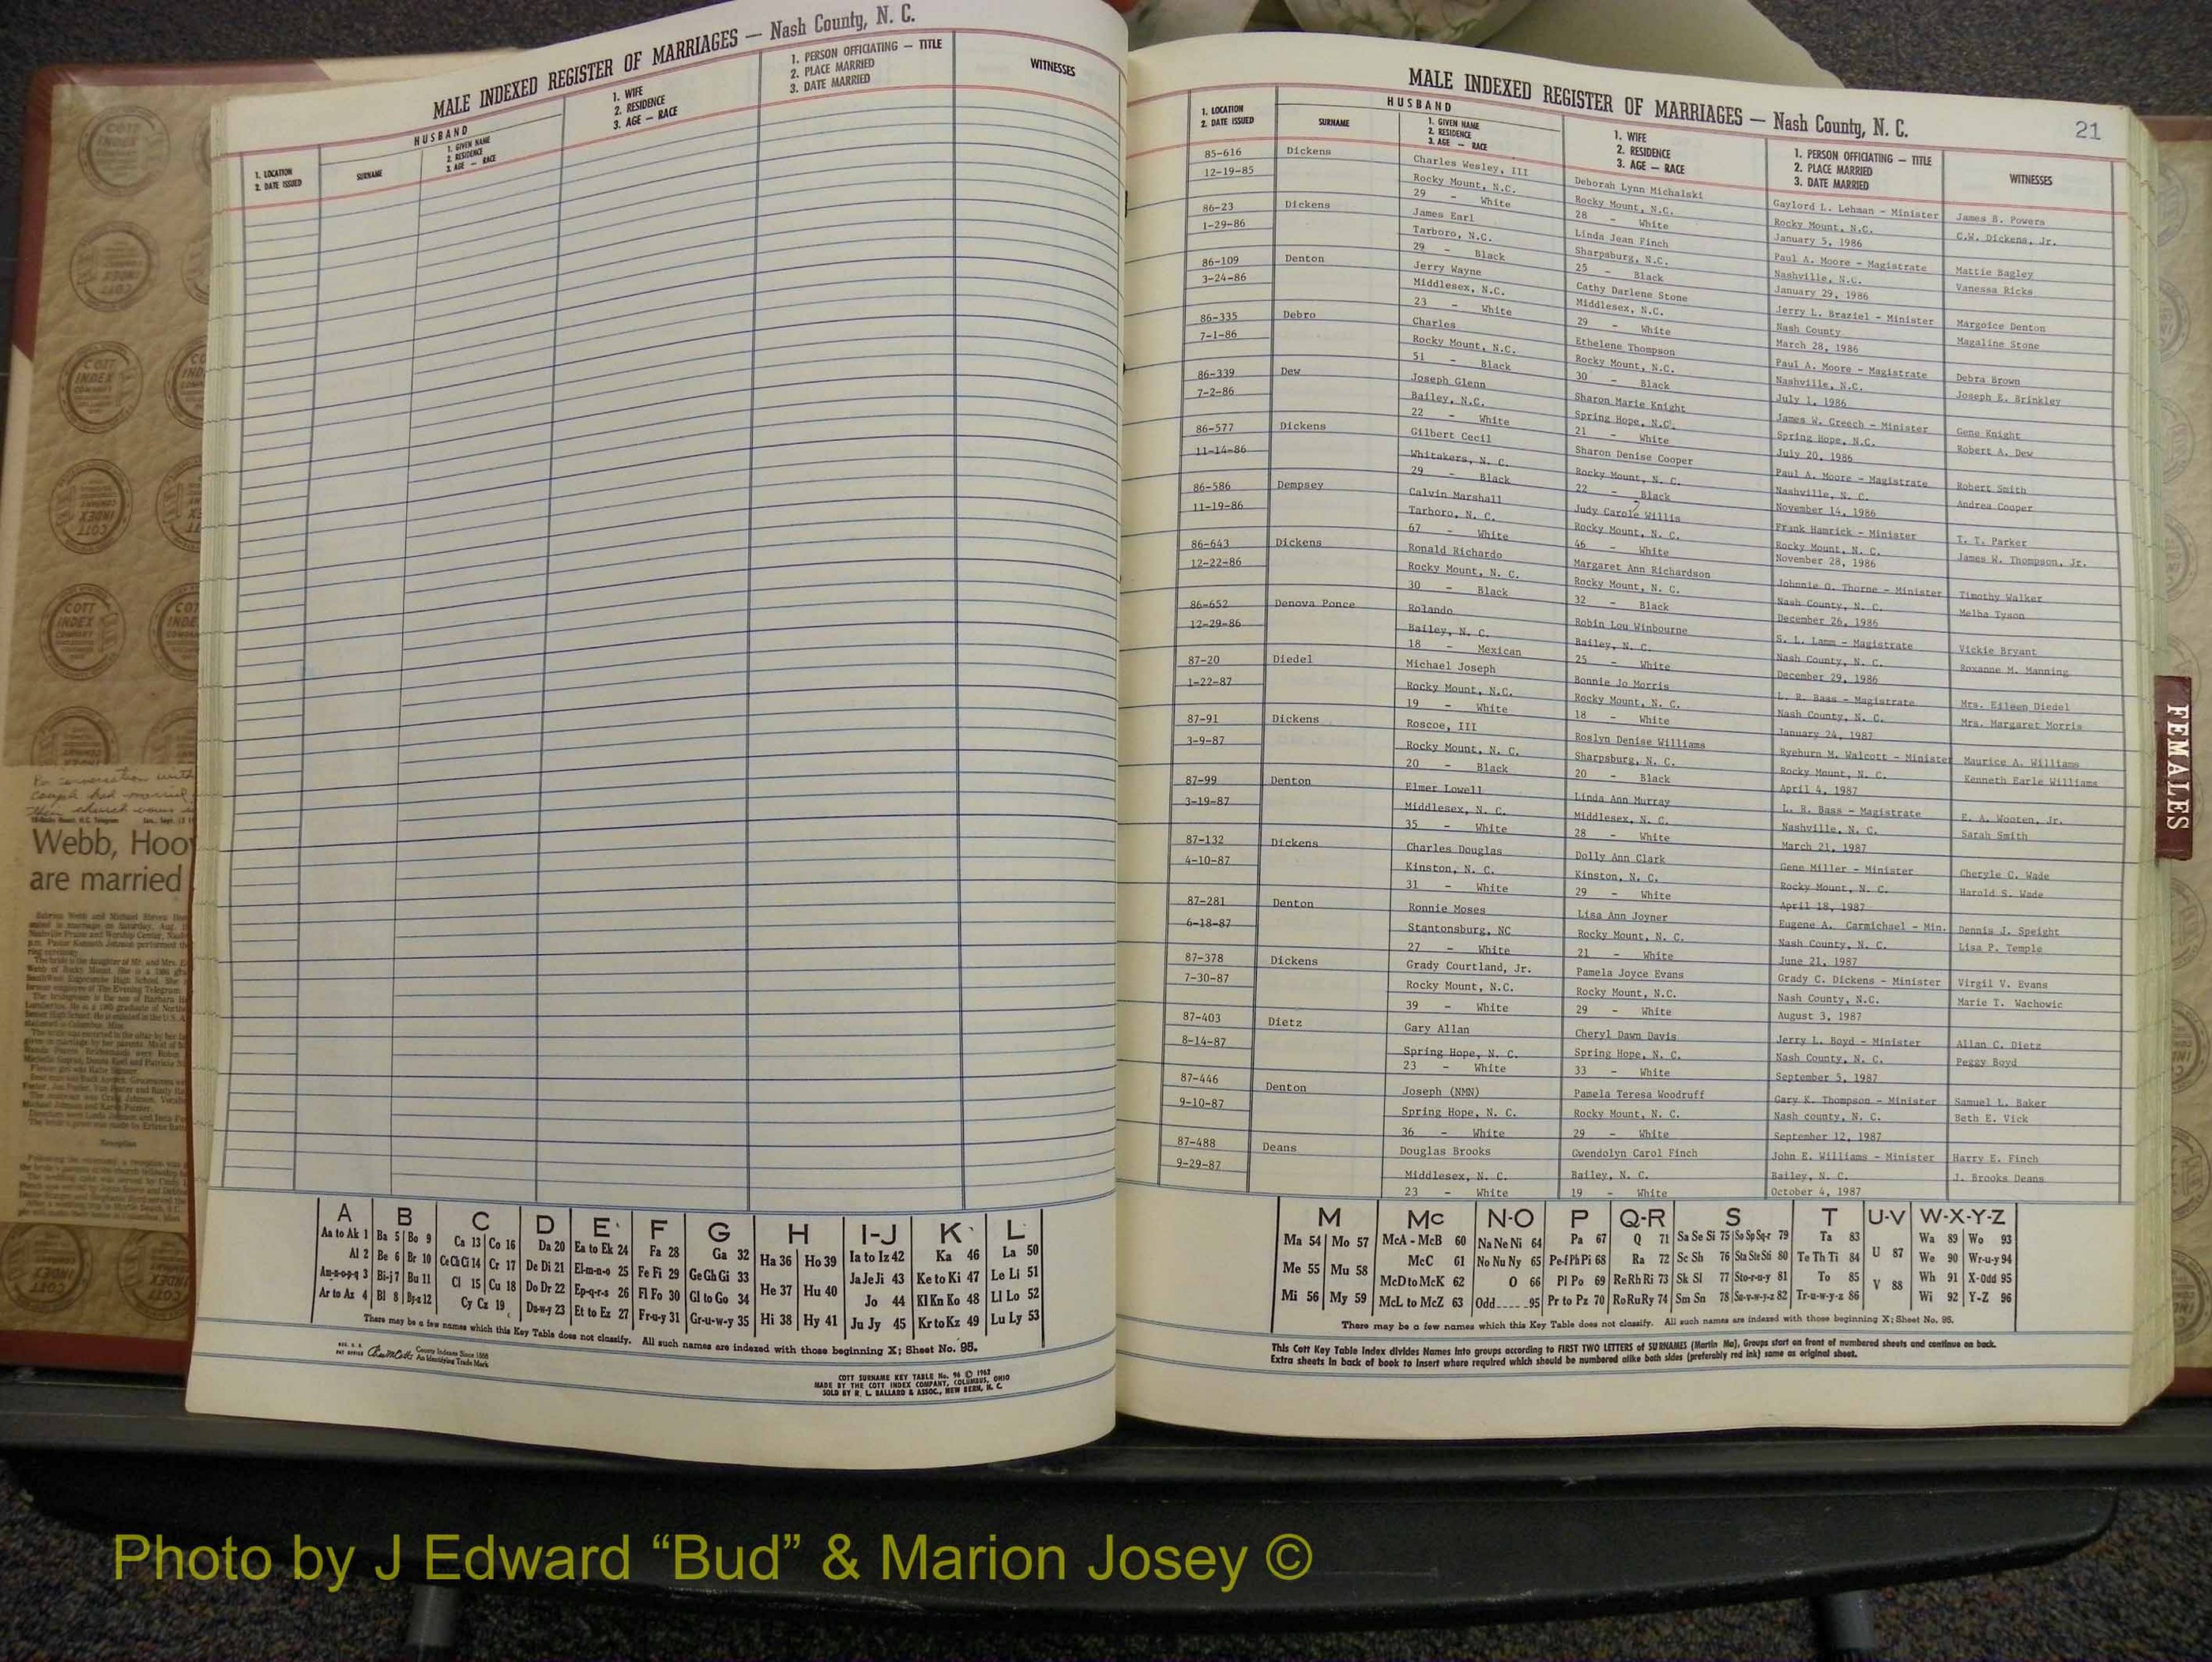 MALE INDEXED REGISTER OF MARRIAGES — Nash County, N. C.
HUSBAND
1. LOCATION
2. DATE ISSUED
SURNAME
1. GIVEN NAME
2. RESIDENCE
3. AGE — RACE
1. WIFE
2. RESIDENCE
3. AGE — RACE
1. PERSON OFFICIATING — TITLE
2. PLACE MARRIED
3. DATE MARRIED
WITNESSES
Webb, Hoo
are married
A B C D E F G H I-J K L
Aa to Ak 1 Ba 5 Bo 9 Ca 13 Co 16 Da 20 Ea to Ek 24 Fa 28 Ga 32 Ha 36 Ho 39 Ia to Iz 42 Ka 46 La 50
Al 2 Be 6 Br 10 Ce Ch Ci 14 Cr 17 De Di 21 El-m-n-o 25 Fe Fi 29 Ge Gh Gi 33 Ja Je Ji 43 Ke to Ki 47 Le Li 51
Am-n-o-p-q 3 Bi-j 7 Bu 11 Cl 15 Cu 18 Do Dr 22 Ep-q-r-s 26 Fl Fo 30 Gl to Go 34 He 37 Hu 40 Jo 44 Kl Kn Ko 48 Ll Lo 52
Ar to Az 4 Bl 8 By-z 12 Cy Cz 19 Du-w-y 23 Et to Ez 27 Fr-u-y 31 Gr-u-w-y 35 Hi 38 Hy 41 Ju Jy 45 Kr to Kz 49 Lu Ly 53
There may be a few names which this Key Table does not classify. All such names are indexed with those beginning X; Sheet No. 95.
County Indexes Since 1888
An Identifying Trade Mark
COTT SURNAME KEY TABLE No. 96 © 1962
MADE BY THE COTT INDEX COMPANY, COLUMBUS, OHIO
SOLD BY R. L. BALLARD & ASSOC., NEW BERN, N. C.
MALE INDEXED REGISTER OF MARRIAGES — Nash County, N. C.
21
HUSBAND
1. LOCATION
2. DATE ISSUED
SURNAME
1. GIVEN NAME
2. RESIDENCE
3. AGE — RACE
1. WIFE
2. RESIDENCE
3. AGE — RACE
1. PERSON OFFICIATING — TITLE
2. PLACE MARRIED
3. DATE MARRIED
WITNESSES
85-616 Dickens Charles Wesley, III Deborah Lynn Michalski Gaylord L. Lehman - Minister James B. Powers
12-19-85 Rocky Mount, N.C. Rocky Mount, N.C. Rocky Mount, N.C. C.W. Dickens, Jr.
29 - White 28 - White January 5, 1986
86-23 Dickens James Earl Linda Jean Finch Paul A. Moore - Magistrate Mattie Bagley
1-29-86 Tarboro, N.C. Sharpsburg, N.C. Nashville, N.C. Vanessa Ricks
29 - Black 25 - Black January 29, 1986
86-109 Denton Jerry Wayne Cathy Darlene Stone Jerry L. Braziel - Minister Margoice Denton
3-24-86 Middlesex, N.C. Middlesex, N.C. Nash County Magaline Stone
23 - White 29 - White March 28, 1986
86-335 Debro Charles Ethelene Thompson Paul A. Moore - Magistrate Debra Brown
7-1-86 Rocky Mount, N.C. Rocky Mount, N.C. Nashville, N.C. Joseph E. Brinkley
51 - Black 30 - Black July 1, 1986
86-339 Dew Joseph Glenn Sharon Marie Knight James W. Creech - Minister Gene Knight
7-2-86 Bailey, N.C. Spring Hope, N.C. Spring Hope, N.C. Robert A. Dew
22 - White 21 - White July 20, 1986
86-577 Dickens Gilbert Cecil Sharon Denise Cooper Paul A. Moore - Magistrate Robert Smith
11-14-86 Whitakers, N. C. Rocky Mount, N. C. Nashville, N. C. Andrea Cooper
29 - Black 22 - Black November 14, 1986
86-586 Dempsey Calvin Marshall Judy Carole Willis Frank Hamrick - Minister T. T. Parker
11-19-86 Tarboro, N. C. Rocky Mount, N. C. Rocky Mount, N. C. James W. Thompson, Jr.
67 - White 46 - White November 28, 1986
86-643 Dickens Ronald Richardo Margaret Ann Richardson Johnnie O. Thorne - Minister Timothy Walker
12-22-86 Rocky Mount, N. C. Rocky Mount, N. C. Nash County, N. C. Melba Tyson
30 - Black 32 - Black December 26, 1986
86-652 Denova Ponce Rolando Robin Lou Winbourne S. L. Lamm - Magistrate Vickie Bryant
12-29-86 Bailey, N. C. Bailey, N. C. Nash County, N. C. Roxanne M. Manning
18 - Mexican 25 - White December 29, 1986
87-20 Diedel Michael Joseph Bonnie Jo Morris L. R. Bass - Magistrate Mrs. Eileen Diedel
1-22-87 Rocky Mount, N.C. Rocky Mount, N. C. Nash County, N. C. Mrs. Margaret Morris
19 - White 18 - White January 24, 1987
87-91 Dickens Roscoe, III Roslyn Denise Williams Ryeburn M. Walcott - Minister Maurice A. Williams
3-9-87 Rocky Mount, N. C. Sharpsburg, N. C. Rocky Mount, N. C. Kenneth Earle Williams
20 - Black 20 - Black April 4, 1987
87-99 Denton Elmer Lowell Linda Ann Murray L. R. Bass - Magistrate E. A. Wooten, Jr.
3-19-87 Middlesex, N. C. Middlesex, N. C. Nashville, N. C. Sarah Smith
35 - White 28 - White March 21, 1987
87-132 Dickens Charles Douglas Dolly Ann Clark Gene Miller - Minister Cheryle C. Wade
4-10-87 Kinston, N. C. Kinston, N. C. Rocky Mount, N. C. Harold S. Wade
31 - White 29 - White April 18, 1987
87-281 Denton Ronnie Moses Lisa Ann Joyner Eugene A. Carmichael - Min. Dennis J. Speight
6-18-87 Stantonsburg, NC Rocky Mount, N. C. Nash County, N. C. Lisa P. Temple
27 - White 21 - White June 21, 1987
87-378 Dickens Grady Courtland, Jr. Pamela Joyce Evans Grady C. Dickens - Minister Virgil V. Evans
7-30-87 Rocky Mount, N.C. Rocky Mount, N.C. Nash County, N.C. Marie T. Wachowic
39 - White 29 - White August 3, 1987
87-403 Dietz Gary Allan Cheryl Dawn Davis Jerry L. Boyd - Minister Allan C. Dietz
8-14-87 Spring Hope, N. C. Spring Hope, N. C. Nash County, N. C. Peggy Boyd
23 - White 33 - White September 5, 1987
87-446 Denton Joseph (NMN) Pamela Teresa Woodruff Gary K. Thompson - Minister Samuel L. Baker
9-10-87 Spring Hope, N. C. Rocky Mount, N. C. Nash county, N. C. Beth E. Vick
36 - White 29 - White September 12, 1987
87-488 Deans Douglas Brooks Gwendolyn Carol Finch John E. Williams - Minister Harry E. Finch
9-29-87 Middlesex, N. C. Bailey, N. C. Bailey, N. C. J. Brooks Deans
23 - White 19 - White October 4, 1987
M Mc N-O P Q-R S T U-V W-X-Y-Z
Ma 54 Mo 57 McA - McB 60 Na Ne Ni 64 Pa 67 Q 71 Sa Se Si 75 So Sp Sq-r 79 Ta 83 U 87 Wa 89 Wo 93
Me 55 Mu 58 McC 61 No Nu Ny 65 Pe-f Ph Pi 68 Ra 72 Sc Sh 76 Sta Ste Sti 80 Te Th Ti 84 We 90 Wr-u-y 94
McD to McK 62 O 66 Pl Po 69 Re Rh Ri 73 Sk Sl 77 Sto-r-u-y 81 To 85 V 88 Wh 91 X-Odd 95
Mi 56 My 59 McL to McZ 63 Odd 95 Pr to Pz 70 Ro Ru Ry 74 Sm Sn 78 Su-v-w-y-z 82 Tr-u-w-y-z 86 Wi 92 Y-Z 96
There may be a few names which this Key Table does not classify. All such names are indexed with those beginning X; Sheet No. 95.
This Cott Key Table Index divides Names into groups according to FIRST TWO LETTERS of SURNAMES (Martin Ma), Groups start on front of numbered sheets and continue on back.
Extra sheets in back of book to insert where required which should be numbered alike both sides (preferably red ink) same as original sheet.
FEMALES
Photo by J Edward “Bud” & Marion Josey ©